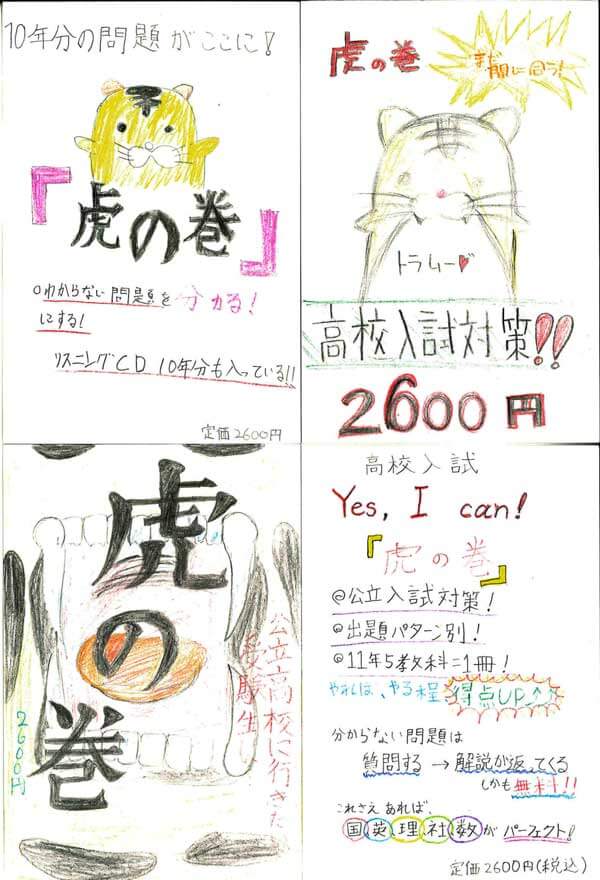 10年分の問題がここに!
『虎の巻』
○わからない問題を分かる!
にする!
リスニングCD 10年分も入っている!!
定価2600円
虎の巻
まだ
間に合う!
トラムー♥
高校入試対策!!
2600円
虎の巻
公立高校に行きた
受験生
2600円
高校入試
Yes, I can!
『虎の巻』
@公立入試対策!
@出題パターン別!
@11年5教科=1冊!
やればやる程 得点UP↑↑
分からない問題は
質問する → 解説が返ってくる
しかも無料!!
これさえあれば、
国英理社数がパーフェクト!
定価2600円(税込)